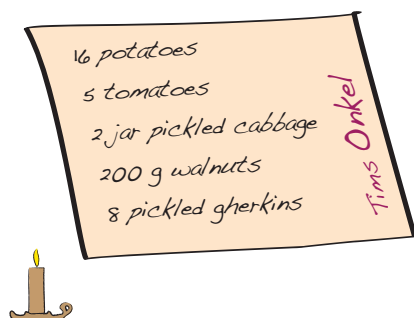 16 potatoes
5 tomatoes
2 jar pickled cabbage
200 g walnuts
8 pickled gherkins
Tims Onkel